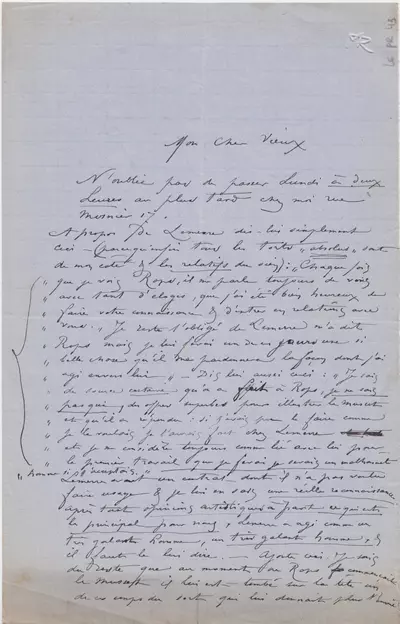 LE PR 43
Mon cher Vieux
N'oublie pas de passer Lundi à deux
heures au plus tard chez moi rue
Mosnier 17.
A propos De Lemerre dis-lui simplement
ceci (parce qu'enfin tous les torts "absolus" sont
de mon coté & les relatifs du sien) : "Chaque fois
" que je vois Rops, il me parle toujours de vous
" avec tant d'éloges, que j'ai été bien heureux de
" faire votre connaissance & d'entrer en relations avec
" vous. " Je reste l'obligé de Lemerre m'a dit
" Rops mais je lui ferai un de ces jours une si
" belle chose qu'il me pardonnera la façon dont j'ai
" agi envers lui " – Dis lui aussi ceci : " Je sais
" de source certaine qu'on a fait à Rops, je ne sais
" pas qui, des offres superbes pour illustrer le Musset
" et qu'il a répondu : si j'avais pu le faire comme
" je le voulais je l'aurais fait chez Lemerre
" et je me considère toujours comme lié avec lui pour
" le premier travail que je ferai je serais un malhonnête
" homme
Lemerre avait un contrat dont il n'a pas voulu
faire usage & je lui en dois une réelle reconnaissance.
après tout opinions artistiques à part ce qui est
le principal pour nous, Lemerre a agi comme un
très galant homme, un très galant homme, &
il faut le lui dire. – Ajoute ceci : Je sais
du reste que au moment où Rops commençait
le Musset il lui est tombé sur la tête un
de ces coups du sort qui lui donnait plus l'envie